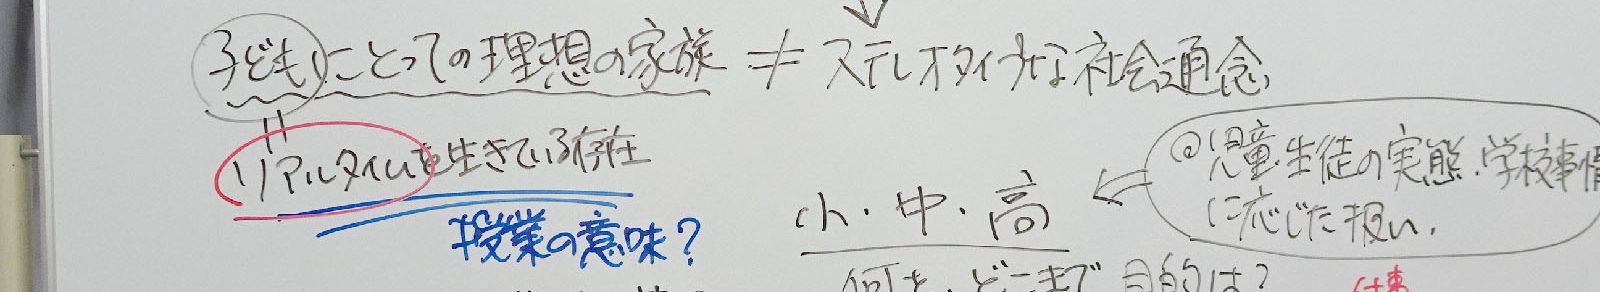 子どもにとっての理想の家族 ≠ ステレオタイプな社会通念
リアルタイムを生きている存在
授業の意味?
小・中・高
◎児童・生徒の実態・学校事情
に応じた扱い.
何を、どこまで 目的は?
仕事